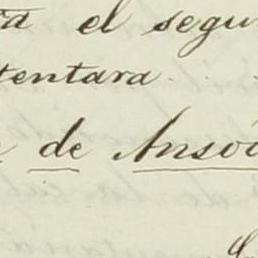 el segu
tentara.
de Ansó